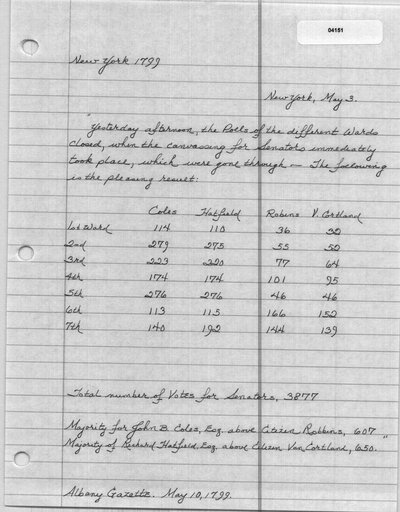 04151
New York 1799
New York, May 3.
"Yesterday afternoon, the Polls of the different Wards
closed, when the canvassing for Senators immediately
took place, which were gone through — The following
is the pleasing result:
Coles Hatfield Robins V. Cortland
1st Ward 114 110 36 32
2nd 279 275 55 52
3rd 223 220 77 64
4th 174 174 101 95
5th 276 276 46 46
6th 113 115 166 152
7th 140 192 144 139
Total number of Votes for Senators, 3877
Majority for John B. Coles, Esq. above Citizen Robbins, 607
Majority of Richard Hatfield, Esq. above Citizen Van Cortland, 650. "
Albany Gazette. May 10, 1799.